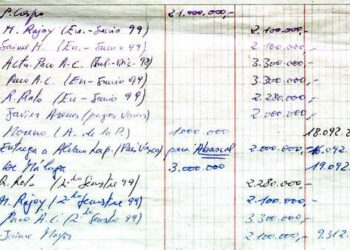 P. Crespo 21.000.000,-
M. Rajoy (En.-Junio 99) 2.100.000,-
Jaime M. (En.-Junio 99) 2.100.000,-
3.300.000,-
Paco A.C. (En.-Junio 99) 3.300.000,-
R. Rato (En.-Junio 99) 2.280.000,-
Javier Arenas (pagos varios) 2.000.000,-
Moreno (A. de la P.) 1000 000 18.092.
Entrega a (País Vasco) para Abascal 2.000.000,- 16.092.
De Málaga 3.000.000 19.092
R. Rato (2º Semestre 99) 2.280.000,-
M. Rajoy (2º Semestre 99) 2.100.000,-
Paco A.C. (2º Semestre 99) 3.300.000,-
Jaime Mayor 2.100.000,- 9.312.